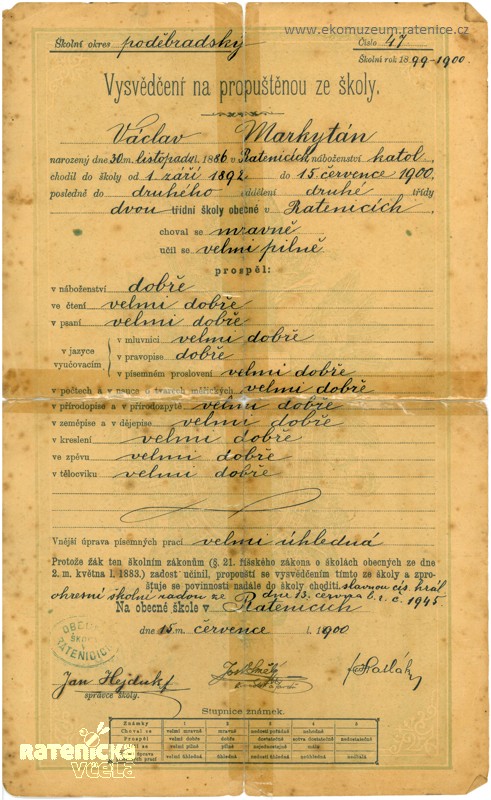 www.ekomuzeum.ratenice.cz
Školní okres poděbradský Číslo 47
Školní rok 1899-1900.
Vysvědčení na propuštěnou ze školy.
Václav Markytán
narozený dne 30.m listopadu l. 1886 v Ratenicích, náboženství katol.,
chodil do školy od 1. září 1892 do 15. července 1900.
posledně do druhého oddělení druhé třídy
dvou třídní školy obecné v Ratenicích.
choval se mravně
učil se velmi pilně
prospěl:
v náboženství dobře
ve čtení velmi dobře
v psaní velmi dobře
v jazyce vyučovacím
v mluvnici velmi dobře
v pravopise dobře
v písemném proslovení velmi dobře
v počtech a v nauce o tvarech měřických velmi dobře
v přírodopise a v přírodozpytě velmi dobře
v zeměpise a v dějepise velmi dobře
v kreslení velmi dobře
ve zpěvu velmi dobře
v tělocviku velmi dobře
Vnější úprava písemných prací velmi úhledná
Protože žák ten školním zákonům (§. 21. říšského zákona o školách obecných ze dne
2. m. května l. 1883.) zadost učinil, propouští se vysvědčením tímto ze školy a zpro-
šťuje se povinnosti nadále do školy choditi slavnou cís. král
okresní školní radou ze dne 13. června b. r. č. 1945
Na obecné škole v Ratenicích
dne 15.m července l. 1900
OBECNÁ
ŠKOLA
RATENICÍCH
Jan Hejduk
správce školy.
Stupnice známek.
Známky 1 2 3 4 5
Choval se velmi mravně mravně nedosti pořádně nehodně
Prospěl velmi dobře dobře dostatečně sotva dostatečně nedostatečně
velmi pilně pilně nejednostejně málo
velmi úhledná úhledná neúhledná nedbalá
RATENICKÁ
včela